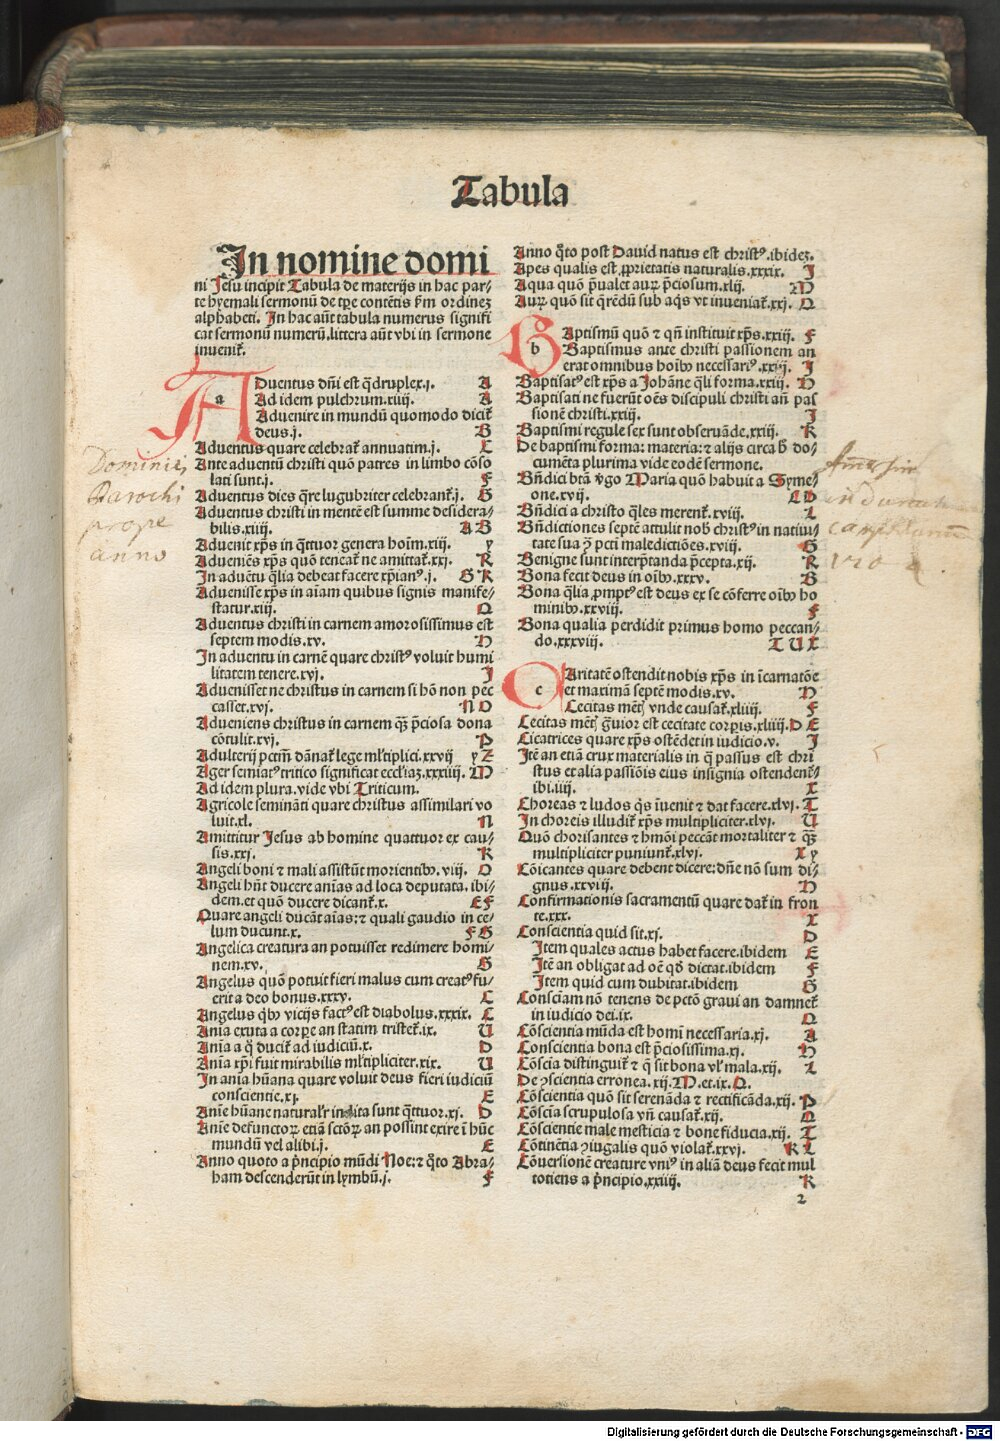 Tabula
In nomine domi
ni Jesu incipit Tabula de materijs in hac par-
te hyemali sermonū de tp̄e contētis s̄m ordinez
alphabeti. In hac aūt tabula numerus signifi
cat sermonū numerū. littera aūt vbi in sermone
inuenit᷑.
Aduentus dn̄i est q̄druplex. j. A
a Ad idem pulchrum. xiiij. A
Aduenire in mundū quomodo dicit᷑
deus. j. B
Aduentus quare celebrat᷑ annuatim. j. C
Ante aduentū christi quō patres in limbo cōso
lati sunt. j. F
Aduentus dies q̄re lugubriter celebrant᷑. j. G
Aduentus christi in mentē est summe desidera-
bilis. xiiij. A B
Aduenit xp̄s in q̄ttuor genera hoīm. xiij. y
Adueniēs xp̄s quō teneat᷑ ne amittat᷑. xxj. R
In aduētu q̄lia debeat facere xp̄ianꝰ. j. G K
Aduenisse xp̄s in aīam quibus signis manife-
statur. xiij. Q
Aduentus christi in carnem amorosissimus est
septem modis. xv. H
In aduentu in carnē quare christꝰ voluit humi
litatem tenere. xvj. J
Aduenisset ne christus in carnem si hō non pec
casset. xvj. N O
Adueniens christus in carnem qᷓꝫ p̄ciosa dona
cōtulit. xvj. P
Adulterij pctm̄ dānat᷑ lege ml̓tiplici. xxvij y Z
Ager semiatꝰ tritico significat eccl̓iaꝫ. xxxiiij. M
Ad idem plura. vide vbi Triticum.
Agricole semināti quare christus assimilari vo
luit. xl. N
Amittitur Jesus ab homine quattuor ex cau-
sis. xxj. K
Angeli boni ⁊ mali assistūt morientibꝰ. viij. O
Angeli hn̄t ducere anīas ad loca deputata. ibi-
dem. et quō ducere dicant᷑. x. E F
Quare angeli ducāt aīas: ⁊ quali gaudio in ce-
lum ducunt. x. F G
Angelica creatura an potuisset redimere homi-
nem. xv. G
Angelus quō potuit fieri malus cum creatꝰ fu-
erit a deo bonus. xxxv. C
Angelus qͥbꝰ vicijs factꝰ est diabolus. xxxix. C
Anīa exuta a corpꝑe an statim tristet᷑. ix. U
Anīa a q̄ ducit᷑ ad iudiciū. x. D
Anīa xp̄i fuit mirabilis ml̓tipliciter. xix. U
In anīa hūana quare voluit deus fieri iudiciū
conscientie. xj. E
Anīe hūane naturalr̓ insita sunt q̄ttuor. xj. D
Anīe defunctoꝝ etiā sctōꝝ an possint exire ī hūc
mundū vel alibi. j. E
Anno quoto a p̄ncipio mūdi Noe: ⁊ q̊to Abra-
ham descenderūt in lymbū. j. F
Anno q̊to post Dauid natus est christꝰ. ibidez.
Apes qualis est ꝓprietatis naturalis. xxxix. J
Aqua quō p̄ualet auꝝ p̄ciosum. xlij. M
Auꝝ quō sit q̄rēdū sub aqͥs vt inueniat᷑. xxj. Q
Baptismū quō ⁊ qn̄ instituit xp̄s. xxiij. F
b Baptismus ante christi passionem an
erat omnibus hoībꝰ necessariꝰ. xxiij. J
Baptisatꝰ est xp̄s a Johāne q̄li forma. xxiij. H
Baptisati ne fuerūt oēs discipuli christi an̄ pas
sionē christi. xxiij. J
Baptismi regule sex sunt obseruāde. xxiij. K
De baptismi forma: materia: ⁊ alijs circa h̄ do-
cumēta plurima vide eodē sermone.
Bn̄dici btā v̓go Maria quō habuit a Syme-
one. xvij. L D
Bn̄dici a christo q̄les merent᷑. xviij. L
Bn̄dictiones septē attulit nob̓ christꝰ in natiui-
tate sua ꝯ̄ pcti maledictiōes. xviij. G
Benigne sunt interp̄tanda p̄cepta. xij. R
Bona fecit deus in oībꝰ. xxxv. B
Bona q̄lia ꝓmptꝰ est deus ex se cōferre oībꝰ ho
minibꝰ. xxviij. F
Bona qualia perdidit primus homo peccan-
do. xxxviij. T U X
Caritatē ostendit nobis xp̄s in īcarnatōe
c et maximā septē modis. xv. H
Cecitas mēt᷒ vnde causat᷑. xliiij. F
Cecitas mēt᷒ g̓uior est cecitate corpꝑis. xliiij. D E
Cicatrices quare xp̄s ostēdet in iudicio. v. J
Itē an etiā crux materialis in q̄ passus est chri
stus et alia passiōis eius insignia ostendent᷑-
ibi. iiij. X
Choreas ⁊ ludos qͥs īuenit ⁊ dat facere. xlvj. T
In choreis illudit᷑ xp̄s multipliciter. xlvj. U
Quō chorisantes ⁊ hmōi peccāt mortaliter ⁊ qᷓꝫ
multipliciter puniunt᷑. xlvj. X y
Cōicantes quare debent dicere: dn̄e nō sum di-
gnus. xxviij. H
Confirmationis sacramentū quare dat᷑ in fron
te. xxx. X
Conscientia quid sit. xj. D
Item quales actus habet facere. ibidem E
Itē an obligat ad oē qd̓ dictat. ibidem F
Item quid cum dubitat. ibidem G
Consciam nō tenens de pctō graui an damnet᷑
in iudicio dei. ix. Q
Cōscientia mūda est homī necessaria. xj. A
Conscientia bona est p̄ciosissima. xj. H
Cōscia distinguit᷑ ⁊ q̄ sit bona vl̓ mala. xij. L
De ꝯscientia erronea. xij. M. et. ix. Q.
Cōscientia quō sit serenāda ⁊ rectificāda. xij. P
Cōscia scrupulosa vn̄ causat᷑. xij. Q
Cōscientie male mesticia ⁊ bone fiducia. xij. T
Cōtinētia ꝯiugalis quō violat᷑. xxvj. K L
Cōuersionē creature vniꝰ in aliā deus fecit mul
totiens a p̄ncipio. xxiiij. K
2
Dominicj
Parochi
prope
anno
Digitalisierung gefördert durch die Deutsche Forschungsgemeinschaft - DFG